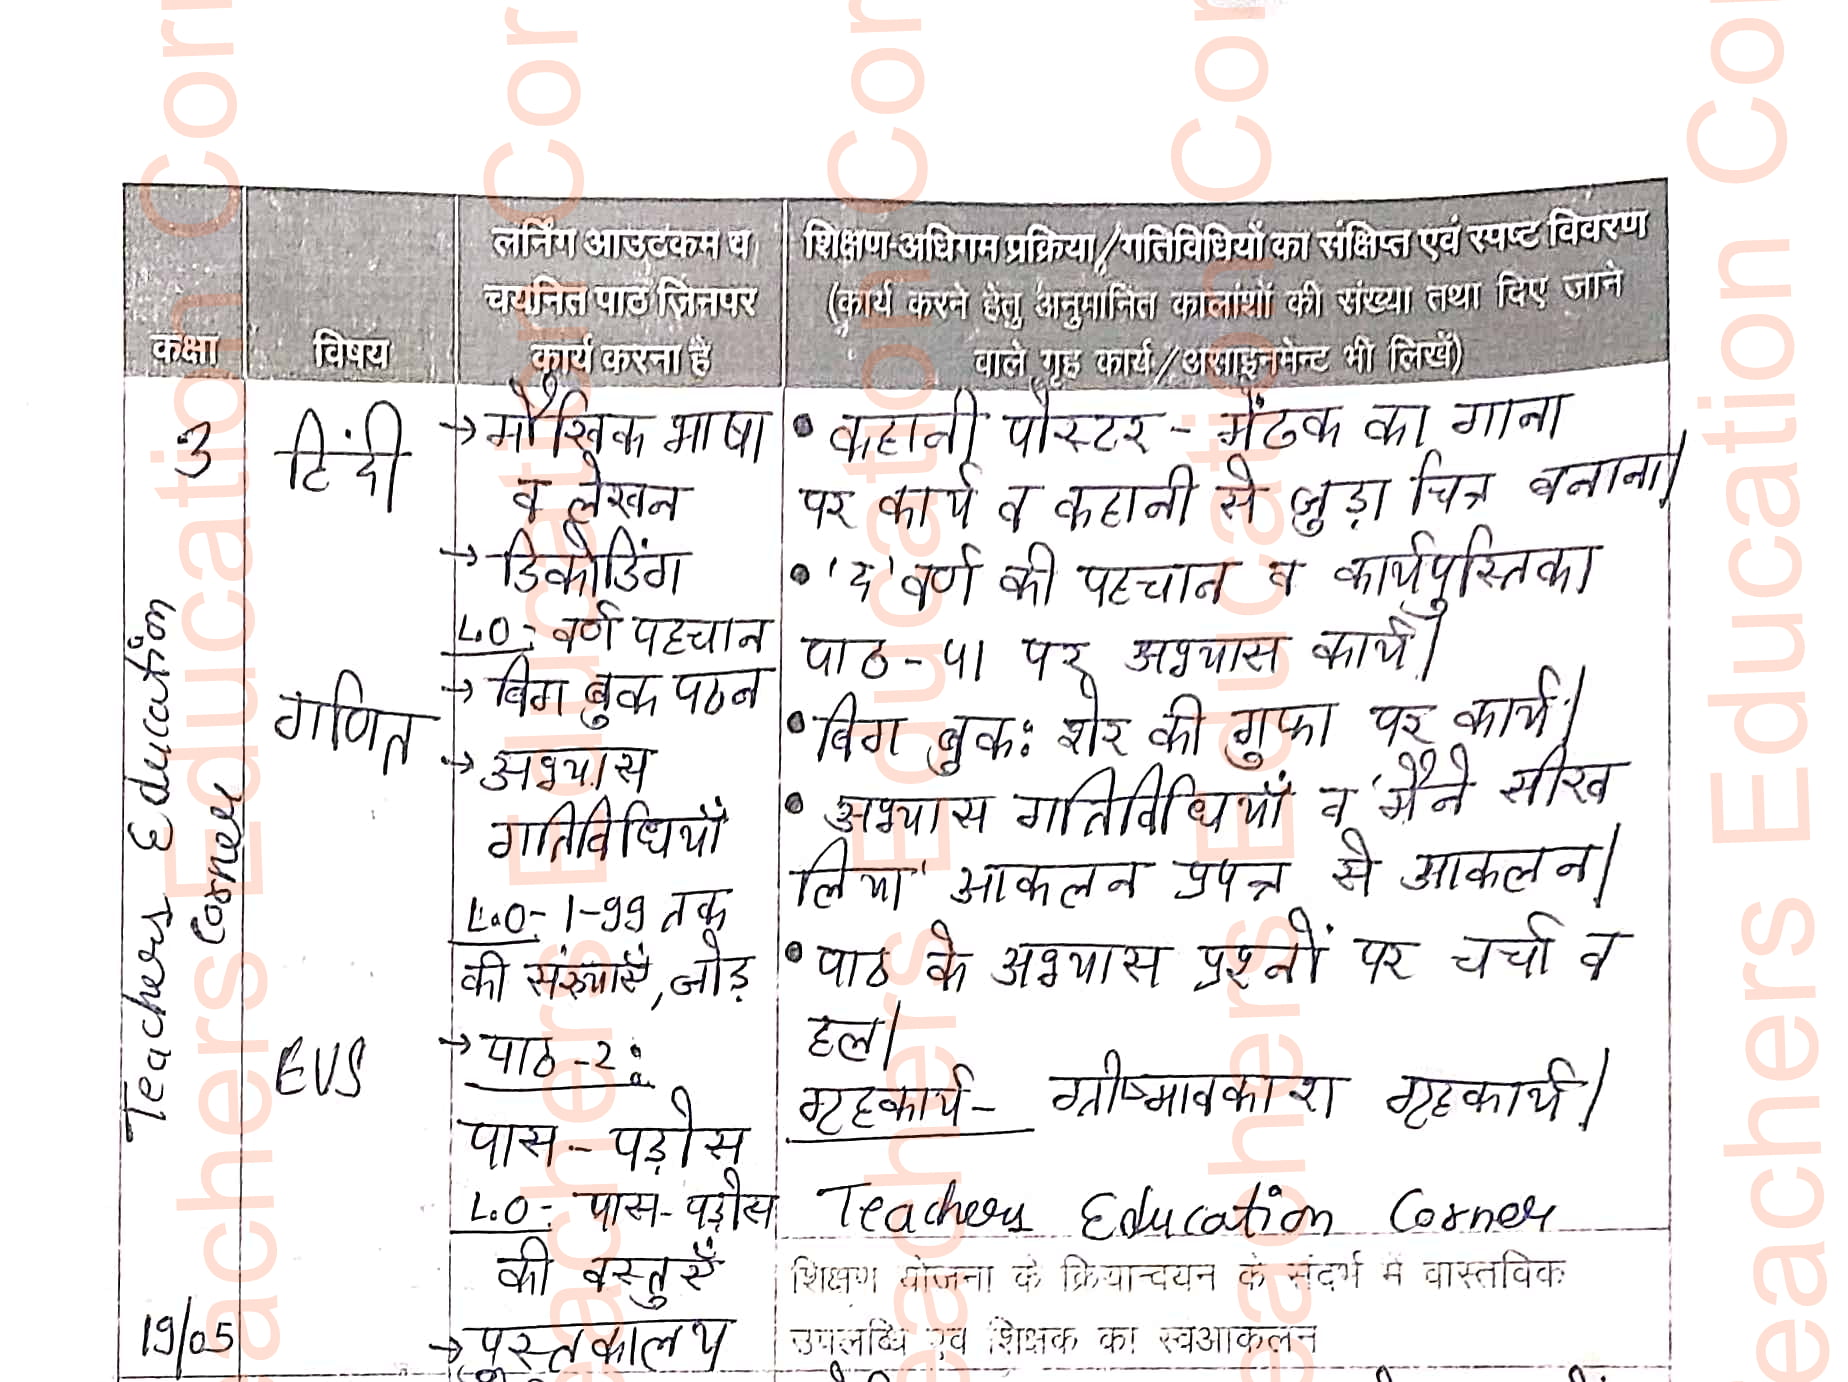 कक्षा
विषय
लर्निंग आउटकम व
चयनित पाठ जिनपर
कार्य करना है
शिक्षण-अधिगम प्रक्रिया/गतिविधियों का संक्षिप्त एवं स्पष्ट विवरण
(कार्य करने हेतु अनुमानित कालांशों की संख्या तथा दिए जाने
वाले गृह कार्य/असाइनमेन्ट भी लिखें)
3
Teachers Education
Corner
19/05
हिंदी
गणित
EVS
→ मौखिक भाषा
व लेखन
→ डिकोडिंग
L.O- वर्ण पहचान
→ बिग बुक पठन
→ अभ्यास
गतिविधियाँ
L.O- 1-99 तक
की संख्याएँ, जोड़
→ पाठ -2:
पास-पड़ोस
L.O- पास-पड़ोस
की वस्तुएँ
→ पुस्तकालय
• कहानी पोस्टर - मेंढक का गाना
पर कार्य व कहानी से जुड़ा चित्र बनाना।
• 'द' वर्ण की पहचान व कार्यपुस्तिका
पाठ-५१ पर अभ्यास कार्य।
• बिग बुक: शेर की गुफा पर कार्य।
• अभ्यास गतिविधियाँ व 'मैंने सीख
लिया' आकलन प्रपत्र से आकलन।
• पाठ के अभ्यास प्रश्नों पर चर्चा व
हल।
गृहकार्य- ग्रीष्मावकाश गृहकार्य।
Teachers Education Corner
शिक्षण योजना के क्रियान्वयन के संदर्भ में वास्तविक
उपलब्धि एवं शिक्षक का स्वआकलन
Teachers Education Corner